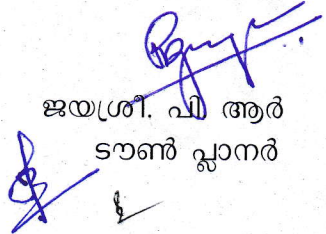 ജയശ്രീ. പി ആർ
ടൗൺ പ്ലാനർ